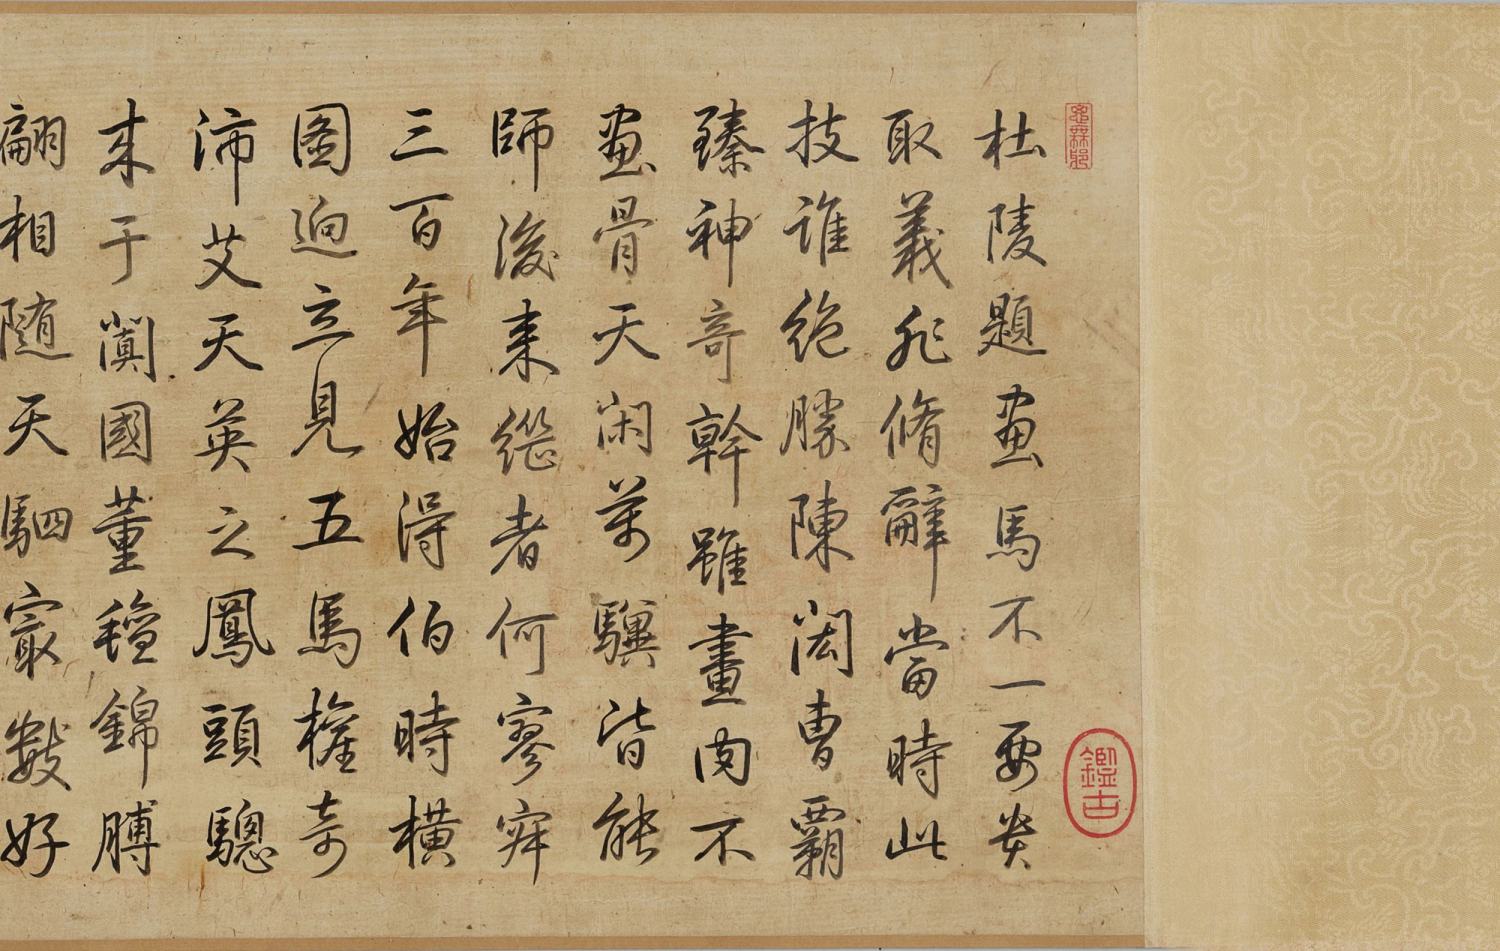 杜陵題畫馬不一要
取義非脩辭當時此
技誰絶勝陳閎曹霸
臻神奇幹雖畫肉不
畫骨天閑萬驥皆能
師後來繼者何寥寥
三百年始得伯時橫
圖逈立見五馬權奇
沛艾天英之鳳頭驄
来于闐國董氊錦膊
翩相随天駟㝡好
鑑古